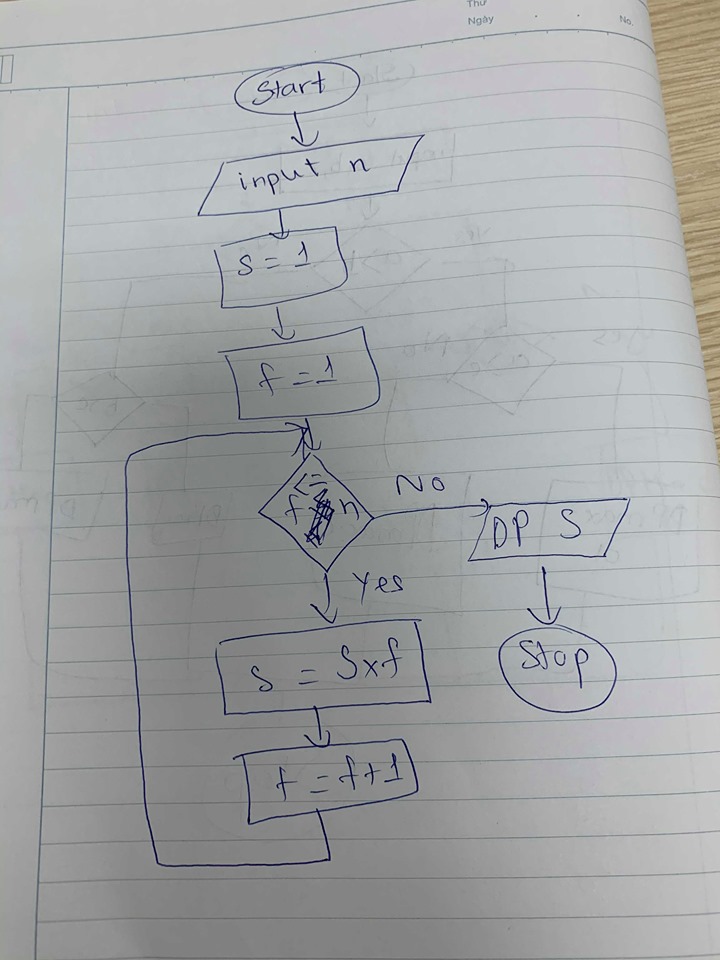 Thứ
Ngày
No.
Start
input n
S = 1
f = 1
f <= n
No
DP S
Yes
Stop
S = S x f
f = f + 1